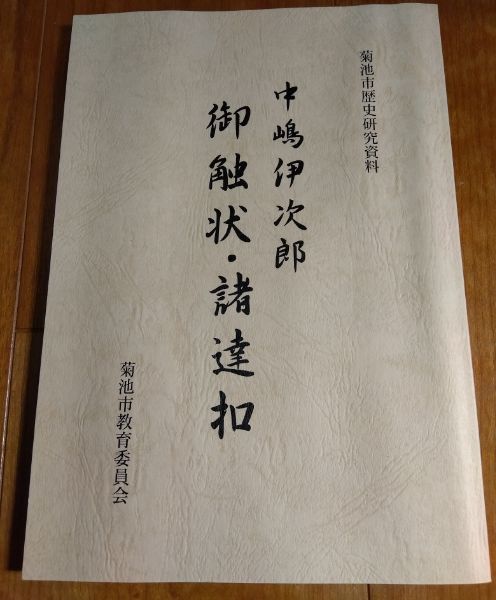 菊池市歴史研究資料
中嶋伊次郎
御触状・諸達扣
菊池市教育委員会